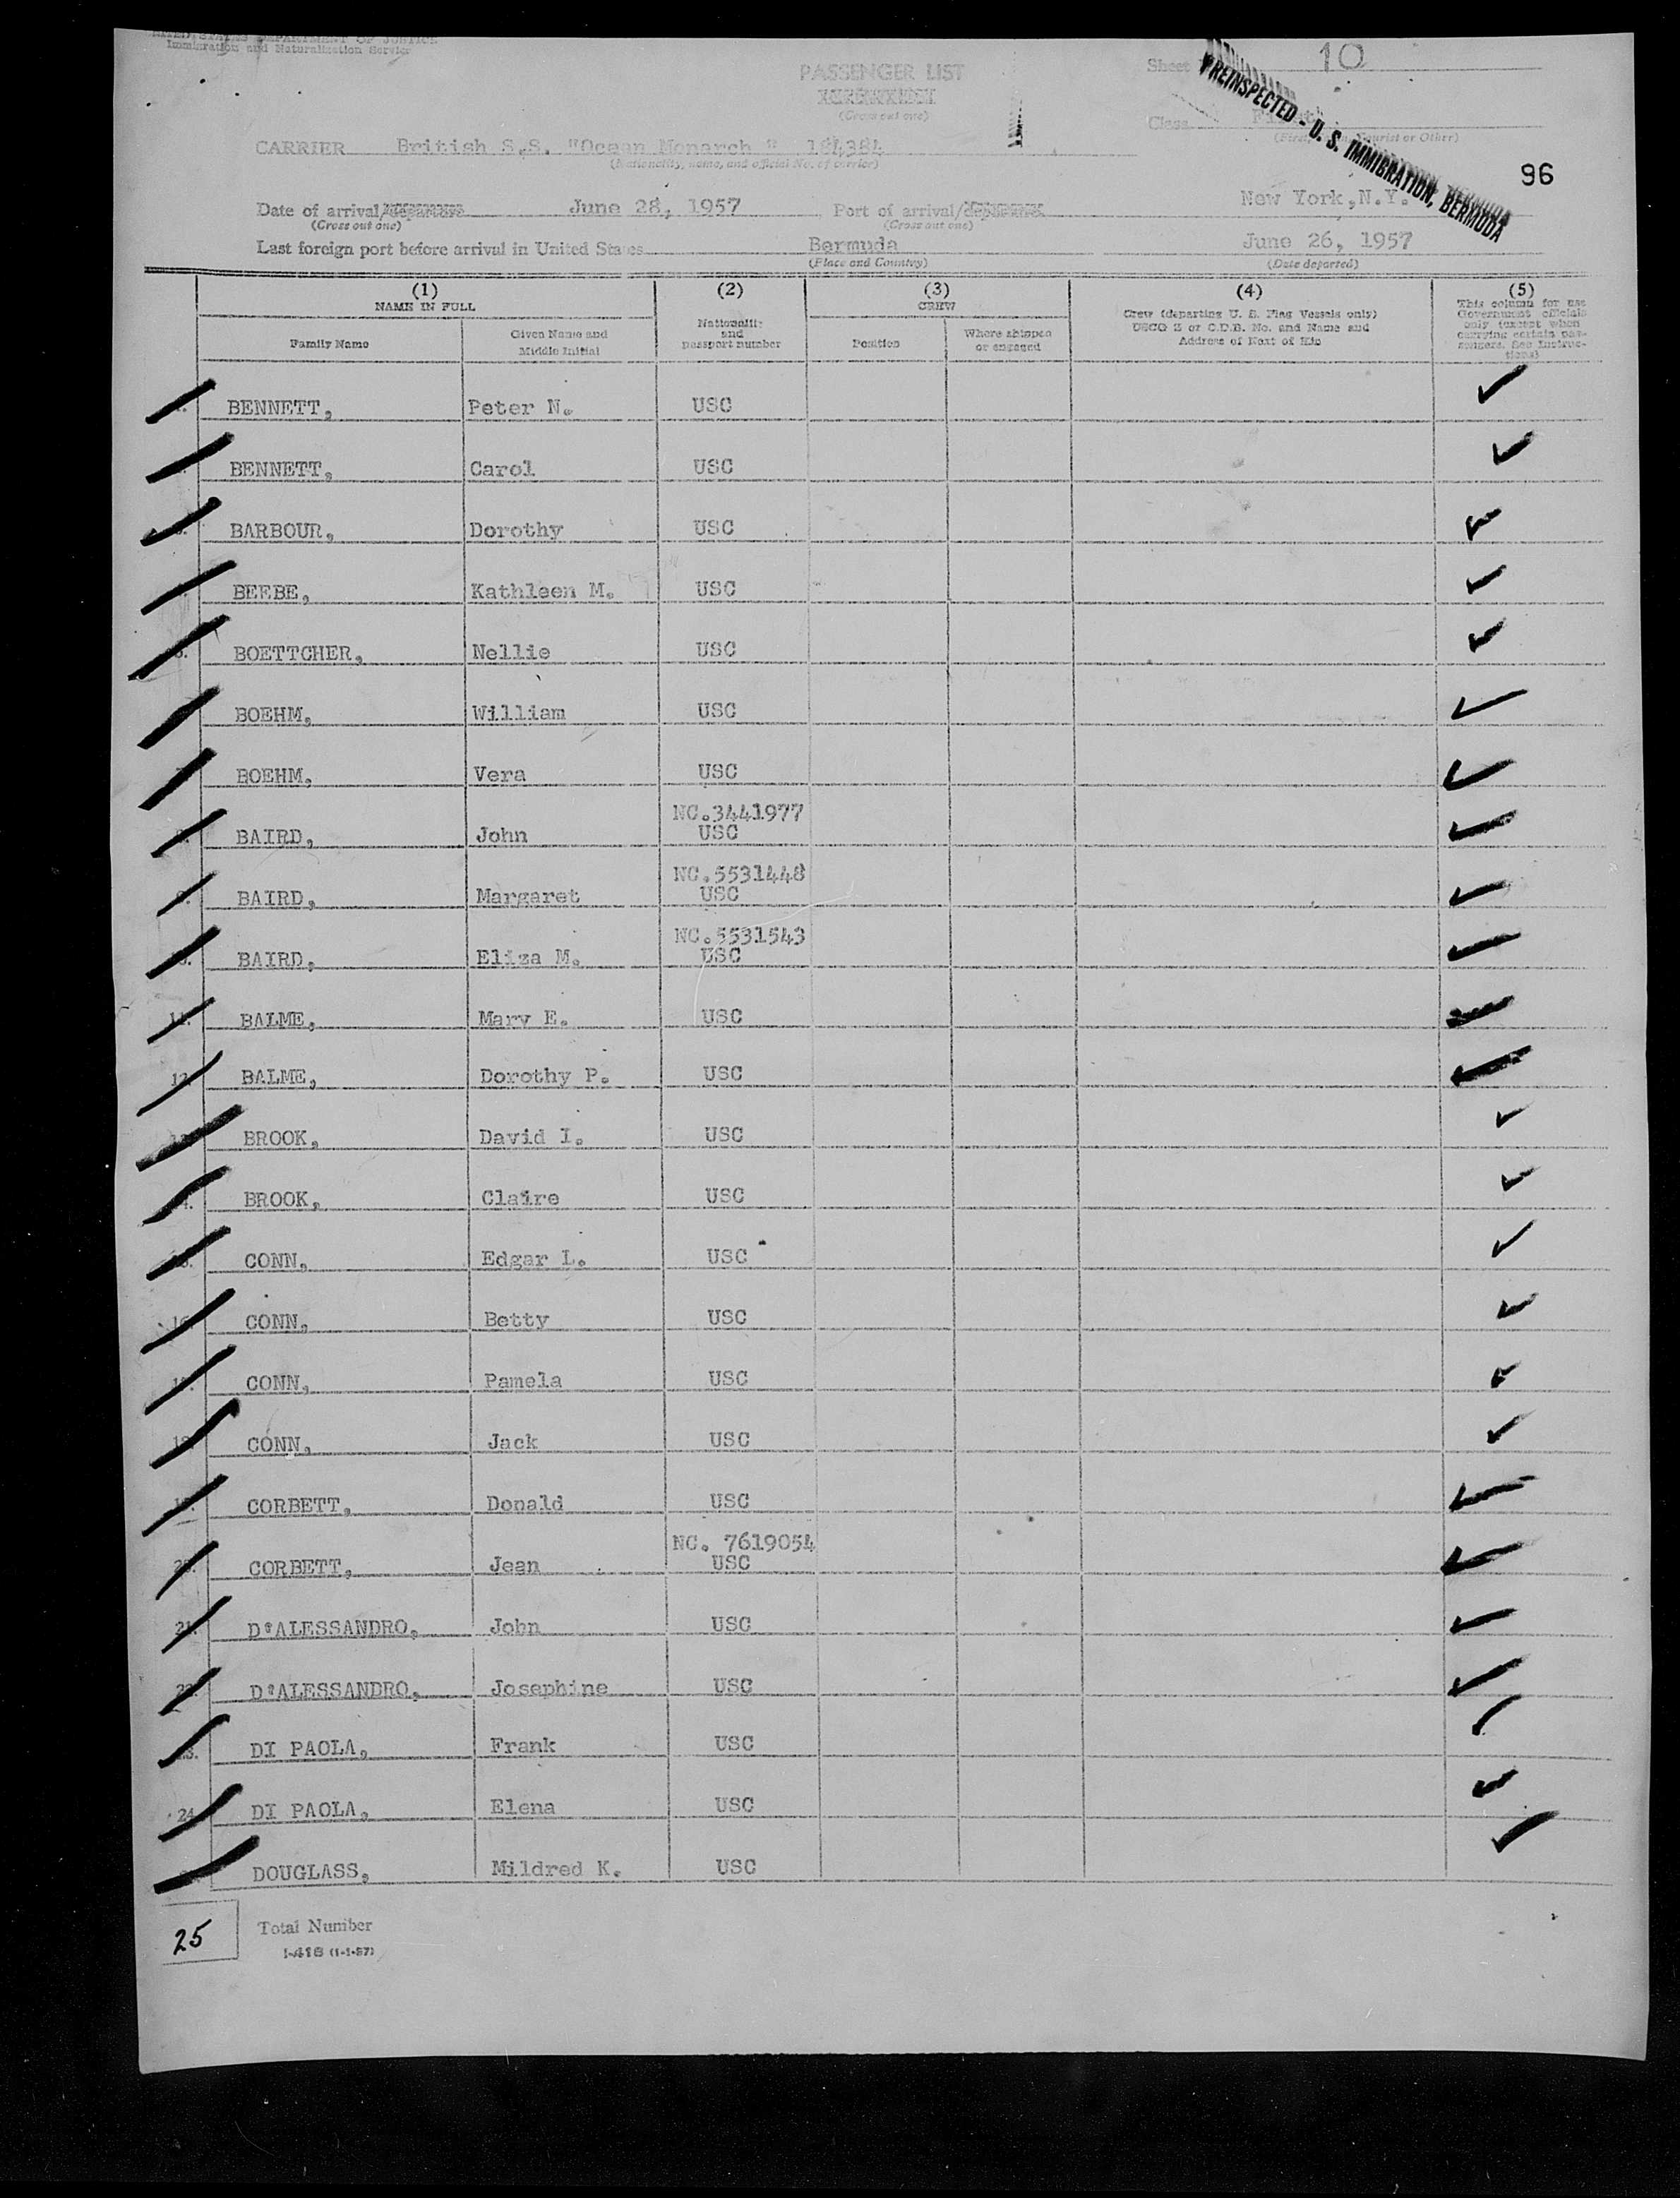 UNITED STATES DEPARTMENT OF JUSTICE
Immigration and Naturalization Service
PASSENGER LIST
(Cross out one)
Sheet 10
Class
(First, Tourist or Other)
PREINSPECTED - U. S. IMMIGRATION, BERMUDA
96
CARRIER British S.S. "Ocean Monarch" 184384
(Nationality, name, and official No. of carrier)
Date of arrival/departure June 28, 1957 Port of arrival/departure New York, N.Y.
(Cross out one) (Cross out one)
Last foreign port before arrival in United States Bermuda June 26, 1957
(Place and Country) (Date departed)
(1) NAME IN FULL (2) (3) CREW (4) (5)
Family Name Given Name and Middle Initial Nationality and passport number Position Where shipped or engaged Crew (departing U. S. Flag Vessels only) USCG Z or C.D.B. No. and Name and Address of Next of Kin This column for use Government officials only (except when carrying certain passengers. See Instructions)
BENNETT, Peter N. USC
BENNETT, Carol USC
BARBOUR, Dorothy USC
BEEBE, Kathleen M. USC
BOETTCHER, Nellie USC
BOEHM, William USC
BOEHM, Vera USC
NC.3441977
BAIRD, John USC
NC.5531448
BAIRD, Margaret USC
NC.5531543
BAIRD, Eliza M. USC
11. BALME, Mary E. USC
12. BALME, Dorothy P. USC
BROOK, David I. USC
BROOK, Claire USC
CONN, Edgar L. USC
16. CONN, Betty USC
CONN, Pamela USC
CONN, Jack USC
CORBETT, Donald USC
NC. 7619054
CORBETT, Jean USC
21. D'ALESSANDRO, John USC
22. D'ALESSANDRO, Josephine USC
DI PAOLA, Frank USC
24. DI PAOLA, Elena USC
DOUGLASS, Mildred K. USC
25 Total Number
I-418 (1-1-57)